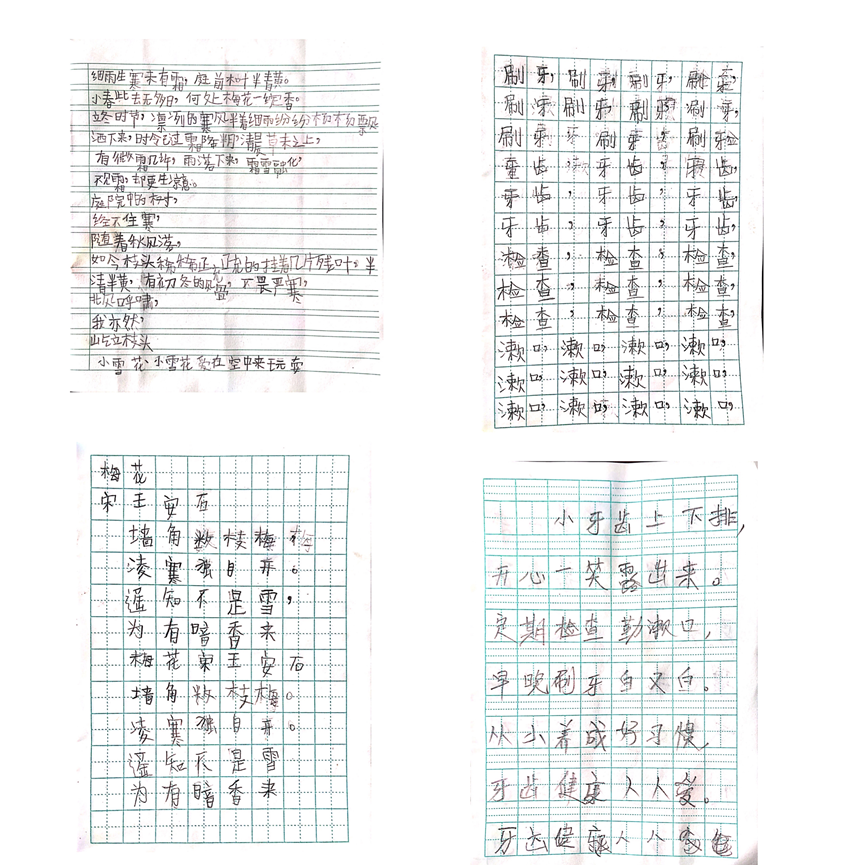 细雨生寒未有霜，庭前木叶半青黄。
小春此去无多日，何处梅花一绽香。
立冬时节，凛冽的寒风半着细雨纷纷
洒下来，时令已过霜降，阴
有微霜几许，雨落下来，霜雪融化，
不见霜，却更生凉意。
庭院中的树，
经不住寒，
随着秋风落，
如今枝头稀稀正正的挂着几片残叶，半
清半黄，有初冬的，不畏严寒，
北风呼啸，
我亦然，
屹立枝头
小雪花，小雪花 在空中来玩耍
刷牙，刷牙，刷牙，刷牙，
刷牙 刷牙，刷牙，刷牙，
刷牙 刷牙 刷牙
齿，齿，齿，
牙齿，牙齿，牙齿，
牙齿，牙齿，牙齿，
检查，检查，检查，
检查，检查，检查，
检查，检查，检查，
漱口，漱口，漱口，漱口，
漱口，漱口，漱口，漱口，
漱口，漱口，漱口，漱口，
梅花
宋王安石
墙角数枝梅
凌寒独自开。
遥知不是雪，
为有暗香来
梅花宋王安石
墙角数枝梅。
凌寒独自开。
遥知不是雪
为有暗香来
小牙齿上下排，
开心一笑露出来。
定期检查勤漱口，
早晚刷牙白又白。
从小养成好习惯，
牙齿健康人人爱。
牙齿健康人人